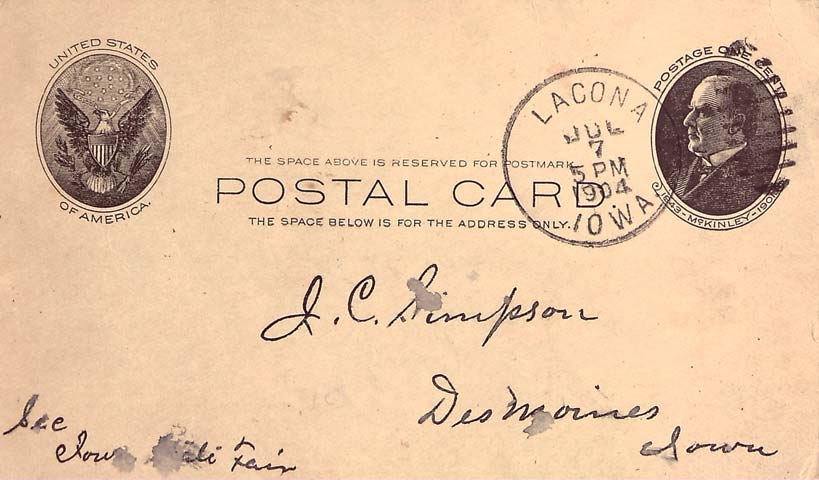 UNITED STATES
OF AMERICA.
POSTAGE ONE CENT
1843-McKINLEY-1901
LACONA
JUL
7
5 PM
1904
IOWA
THE SPACE ABOVE IS RESERVED FOR POSTMARK
POSTAL CARD.
THE SPACE BELOW IS FOR THE ADDRESS ONLY.
J. C. Simpson
Des Moines
Iowa
Sec
Iowa State Fair